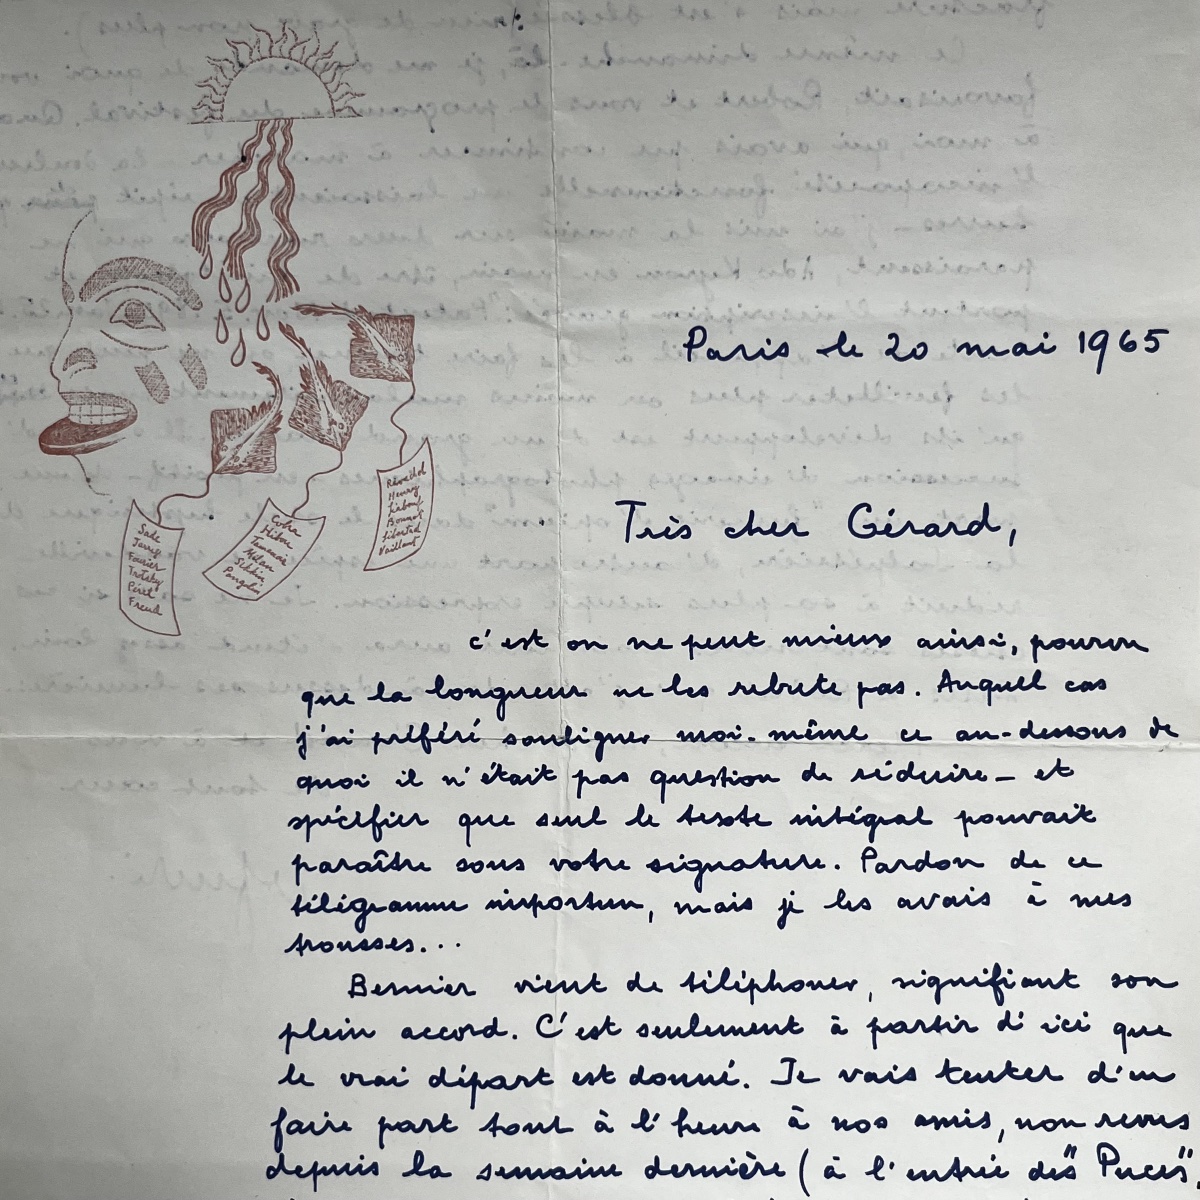 Paris le 20 mai 1965
Très cher Gérard,
Sade
Jarry
Fourier
Trotsky
Péret
Freud
Cobra
Hibou
Tamanoir
Milan
Pangolin
Ravachol
Henry
Bonnot
Libertad
Vaillant
c'est on ne peut mieux ainsi, pourvu
que la longueur ne les rebute pas. Auquel cas
j'ai préféré souligner moi-même ce au-dessous de
quoi il n'était pas question de réduire — et
spécifier que seul le texte intégral pouvait
paraître sous votre signature. Pardon de ce
télégramme importun, mais je les avais à mes
trousses...
Bernier vient de téléphoner, signifiant son
plein accord. C'est seulement à partir d'ici que
le vrai départ est donné. Je vais tenter d'en
faire part tout à l'heure à nos amis, non revus
depuis la semaine dernière (à l'entrée des "Puces",